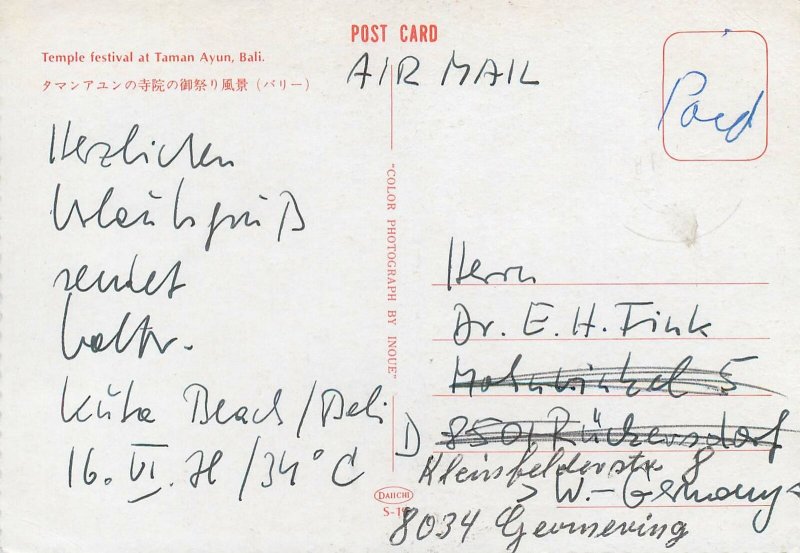 POST CARD
Temple festival at Taman Ayun, Bali.
タマンアユンの寺院の御祭り風景 (バリー)
AIR MAIL
Paid
Herzlichen
Urlaubsgruß
sendet
Walter.
Kuta Beach / Bali
16. VI. 78 / 34° C
"COLOR PHOTOGRAPH BY INOUE"
DAIICHI
Herrn
Dr. E. H. Fink
Mohnwinkel 5
D 8501 Rückersdorf
Kleinfelderstr 8
> W-Germany
8034 Germering